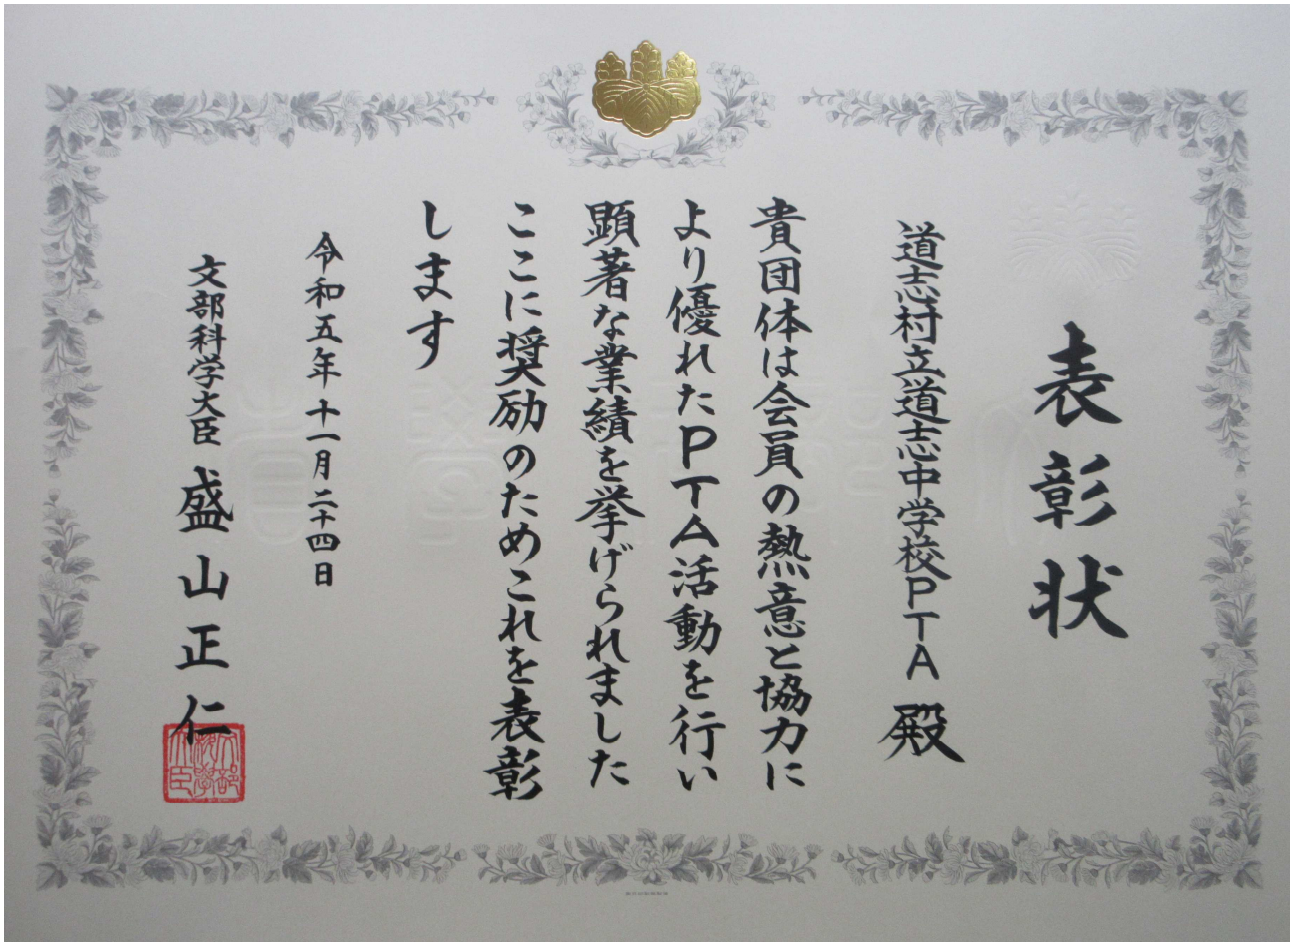 表彰状
道志村立道志中学校PTA殿
貴団体は会員の熱意と協力に
より優れたPTA活動を行い
顕著な業績を挙げられました
ここに奨励のためこれを表彰
します
令和五年十一月二十四日
文部科学大臣 盛山正仁